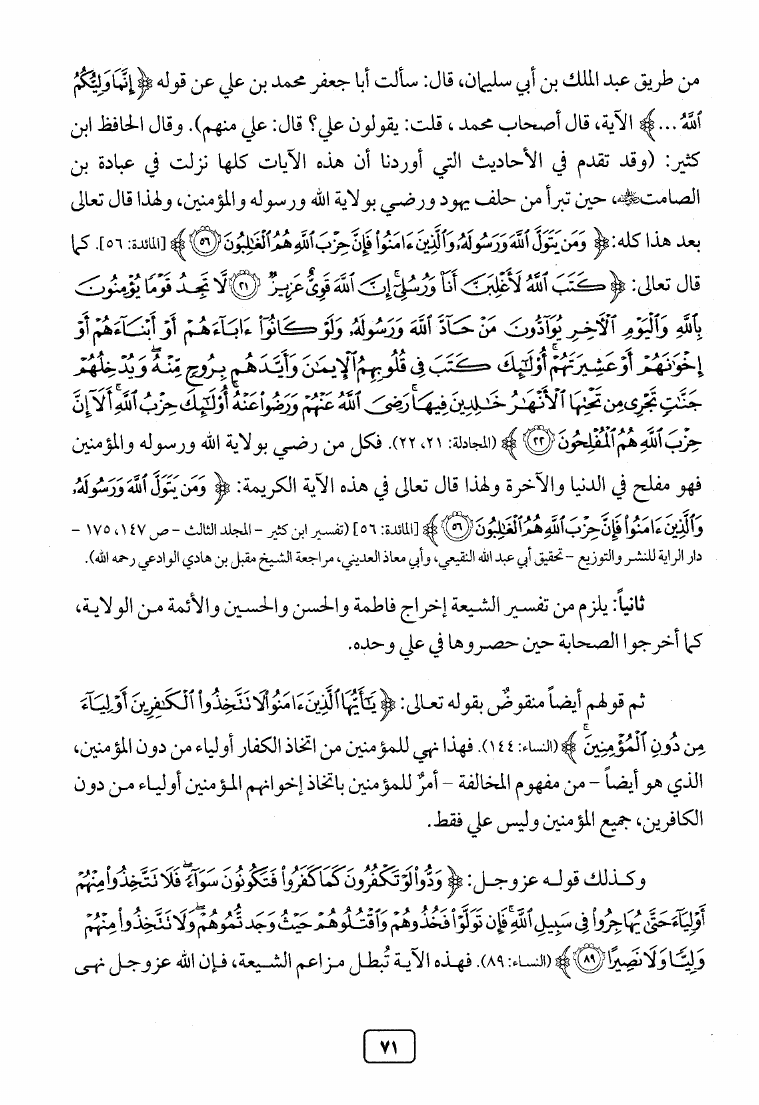 من طريق عبد الملك بن أبي سليمان، قال: سألت أبا جعفر محمد بن علي عن قوله ﴿ إِنَّمَا وَلِيُّكُمُ
ٱللَّهُ ... ﴾ الآية، قال أصحاب محمد ، قلت: يقولون علي؟ قال: علي منهم). وقال الحافظ ابن
كثير: (وقد تقدم في الأحاديث التي أوردنا أن هذه الآيات كلها نزلت في عبادة بن
الصامت رضي الله عنه، حين تبرأ من حلف يهود ورضي بولاية الله ورسوله والمؤمنين، ولهذا قال تعالى
بعد هذا كله: ﴿ وَمَن يَتَوَلَّ ٱللَّهَ وَرَسُولَهُۥ وَٱلَّذِينَ ءَامَنُوا۟ فَإِنَّ حِزْبَ ٱللَّهِ هُمُ ٱلْغَٰلِبُونَ ٥٦ ﴾ [المائدة: ٥٦]. كما
قال تعالى: ﴿ كَتَبَ ٱللَّهُ لَأَغْلِبَنَّ أَنَا۠ وَرُسُلِىٓ إِنَّ ٱللَّهَ قَوِىٌّ عَزِيزٌ ٢١ لَّا تَجِدُ قَوْمًا يُؤْمِنُونَ
بِٱللَّهِ وَٱلْيَوْمِ ٱلْءَاخِرِ يُوَآدُّونَ مَنْ حَآدَّ ٱللَّهَ وَرَسُولَهُۥ وَلَوْ كَانُوٓا۟ ءَابَآءَهُمْ أَوْ أَبْنَآءَهُمْ أَوْ
إِخْوَٰنَهُمْ أَوْ عَشِيرَتَهُمْ أُو۟لَٰٓئِكَ كَتَبَ فِى قُلُوبِهِمُ ٱلْإِيمَٰنَ وَأَيَّدَهُم بِرُوحٍ مِّنْهُ وَيُدْخِلُهُمْ
جَنَّٰتٍ تَجْرِى مِن تَحْتِهَا ٱلْأَنْهَٰرُ خَٰلِدِينَ فِيهَا رَضِىَ ٱللَّهُ عَنْهُمْ وَرَضُوا۟ عَنْهُ أُو۟لَٰٓئِكَ حِزْبُ ٱللَّهِ أَلَآ إِنَّ
حِزْبَ ٱللَّهِ هُمُ ٱلْمُفْلِحُونَ ٢٢ ﴾ (المجادلة: ٢١، ٢٢). فكل من رضي بولاية الله ورسوله والمؤمنين
فهو مفلح في الدنيا والآخرة ولهذا قال تعالى في هذه الآية الكريمة: ﴿ وَمَن يَتَوَلَّ ٱللَّهَ وَرَسُولَهُۥ
وَٱلَّذِينَ ءَامَنُوا۟ فَإِنَّ حِزْبَ ٱللَّهِ هُمُ ٱلْغَٰلِبُونَ ٥٦ ﴾ [المائدة: ٥٦] (تفسير ابن كثير – المجلد الثالث – ص ١٤٧، ١٧٥ –
دار الراية للنشر والتوزيع – تحقيق أبي عبد الله النقيعي، وأبي معاذ العديني، مراجعة الشيخ مقبل بن هادي الوادعي رحمه الله).
ثانياً: يلزم من تفسير الشيعة إخراج فاطمة والحسن والحسين والأئمة من الولاية،
كما أخرجوا الصحابة حين حصروها في علي وحده.
ثم قولهم أيضاً منقوضٌ بقوله تعالى: ﴿ يَٰٓأَيُّهَا ٱلَّذِينَ ءَامَنُوا۟ لَا تَتَّخِذُوا۟ ٱلْكَٰفِرِينَ أَوْلِيَآءَ
مِن دُونِ ٱلْمُؤْمِنِينَ ﴾ (النساء: ١٤٤). فهذا نهي للمؤمنين من اتخاذ الكفار أولياء من دون المؤمنين،
الذي هو أيضاً – من مفهوم المخالفة – أمرٌ للمؤمنين باتخاذ إخوانهم المؤمنين أولياء من دون
الكافرين، جميع المؤمنين وليس علي فقط.
وكذلك قوله عز وجل: ﴿ وَدُّوا۟ لَوْ تَكْفُرُونَ كَمَا كَفَرُوا۟ فَتَكُونُونَ سَوَآءً فَلَا تَتَّخِذُوا۟ مِنْهُمْ
أَوْلِيَآءَ حَتَّىٰ يُهَاجِرُوا۟ فِى سَبِيلِ ٱللَّهِ فَإِن تَوَلَّوْا۟ فَخُذُوهُمْ وَٱقْتُلُوهُمْ حَيْثُ وَجَدتُّمُوهُمْ وَلَا تَتَّخِذُوا۟ مِنْهُمْ
وَلِيًّا وَلَا نَصِيرًا ٨٩ ﴾ (النساء: ٨٩). فهذه الآية تُبطل مزاعم الشيعة، فإن الله عز وجل نهى
٧١